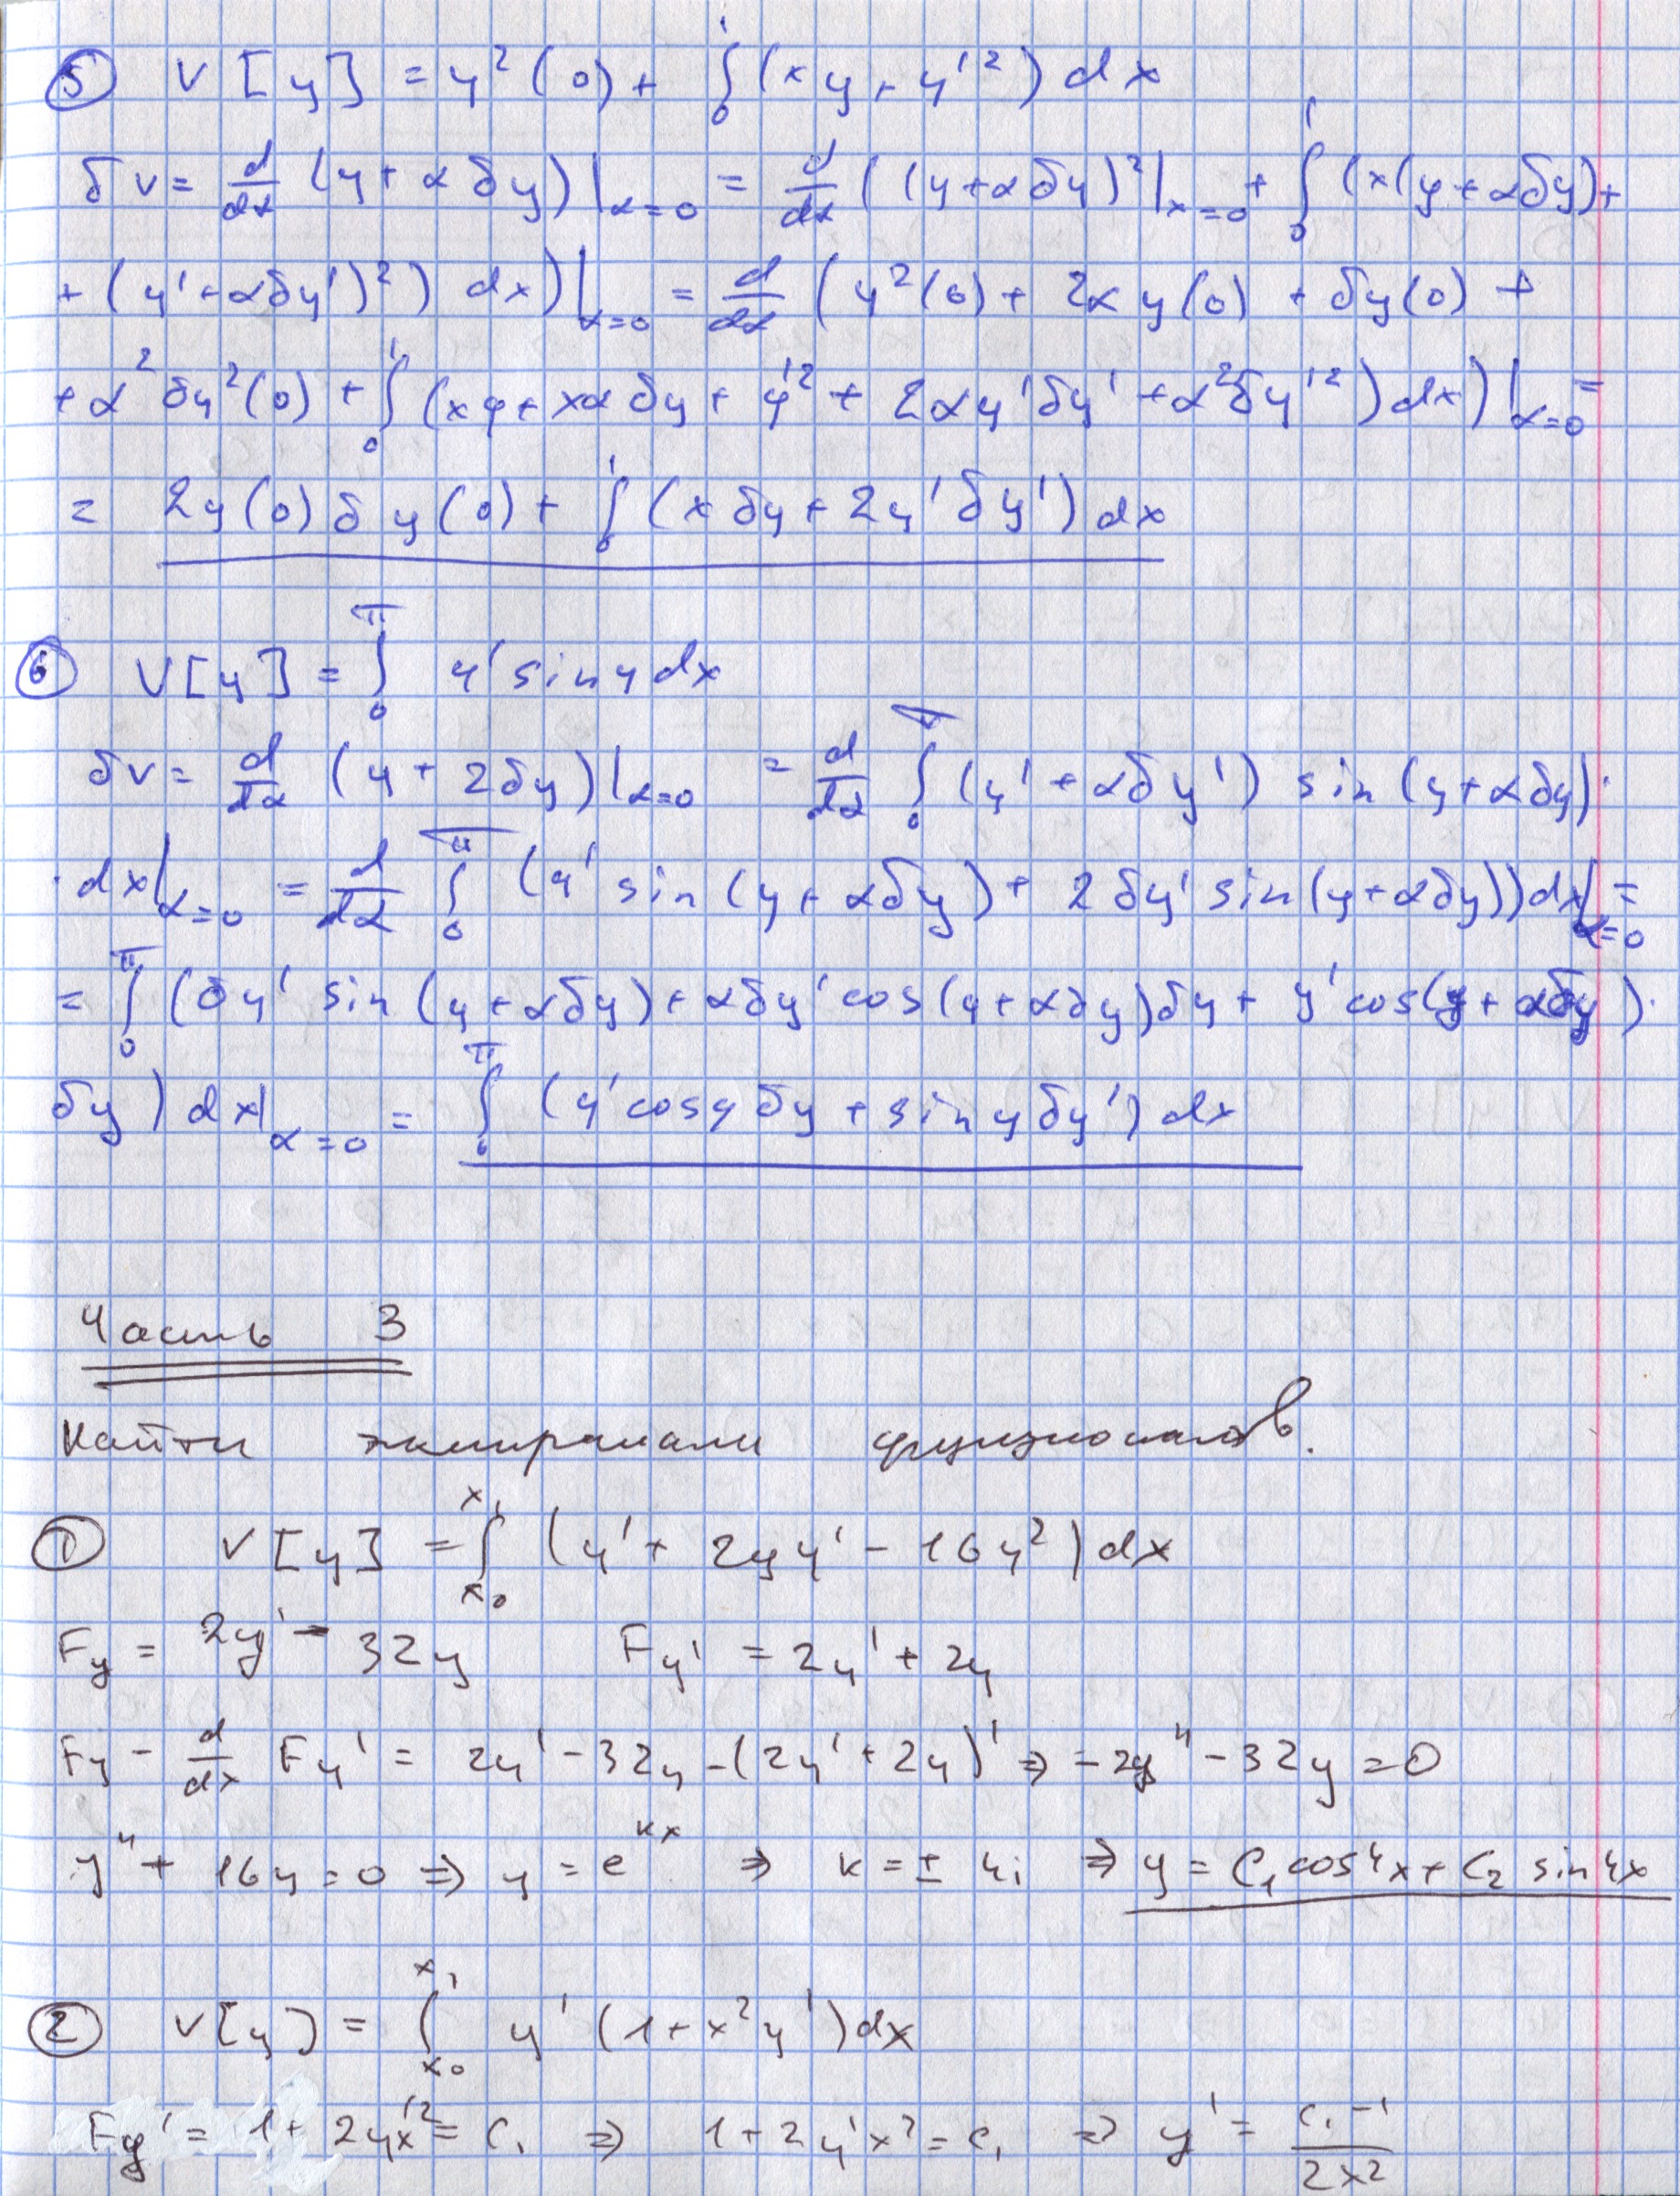 ⑤ V[y] = y²(0) + ∫₀¹ (xy + y'²) dx
δv = d/dα (y + αδy)|α=0 = d/dα ((y+αδy)²|x=0 + ∫₀¹ (x(y+αδy)+
+ (y'+αδy')²) dx)|α=0 = d/dα (y²(0) + 2αy(0) + δy(0) +
+ α²δy²(0) + ∫₀¹ (xy + xαδy + y'² + 2αy'δy' + α²δy'²) dx)|α=0 =
= 2y(0)δy(0) + ∫₀¹ (xδy + 2y'δy') dx
⑥ V[y] = ∫₀^π y' sin y dx
δv = d/dα (y + 2δy)|α=0 = d/dα ∫₀^π (y' + αδy') sin (y+αδy)·
·dx|α=0 = d/dα ∫₀^π (y' sin (y+αδy) + 2δy' sin(y+αδy))dx|α=0 =
= ∫₀^π (δy' sin (y+αδy) + αδy' cos(y+αδy)δy + y' cos(y+αδy)·
δy) dx|α=0 = ∫₀^π (y' cos y δy + sin y δy') dx
Часть 3
Найти экстремали функционалов.
① V[y] = ∫x₀^x₁ (y' + 2yy' - 16y²) dx
Fy = 2y' - 32y Fy' = 2y' + 2y
Fy - d/dx Fy' = 2y' - 32y - (2y' + 2y)' ⇒ -2y'' - 32y = 0
y'' + 16y = 0 ⇒ y = e^kx ⇒ k = ± 4i ⇒ y = C₁cos4x + C₂ sin4x
② V[y] = ∫x₀^x₁ y' (1 + x²y') dx
Fy' = 1 + 2yx'² = C₁ ⇒ 1 + 2y'x² = C₁ ⇒ y' = (C₁ - 1)/(2x²)